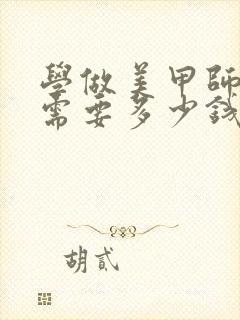 學做美甲師
需要多少錢
胡貳